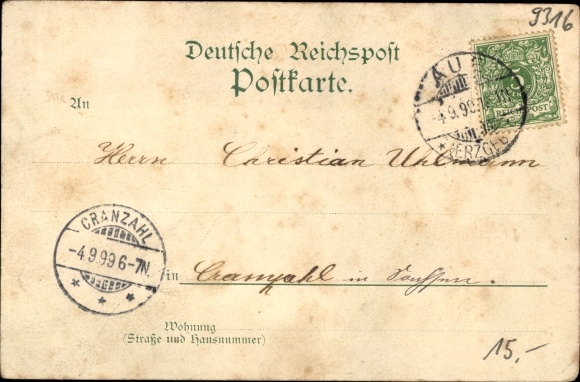 9316
Deutsche Reichspost
Postkarte.
AU
-4.9.99.
* (ERZGEB.
REICHSPOST
An
Herrn Christian Uhlmann
CRANZAHL
-4.9.99 6-7N.
* * *
in Cranzahl in Sachsen.
Wohnung
(Straße und Hausnummer)
15,-